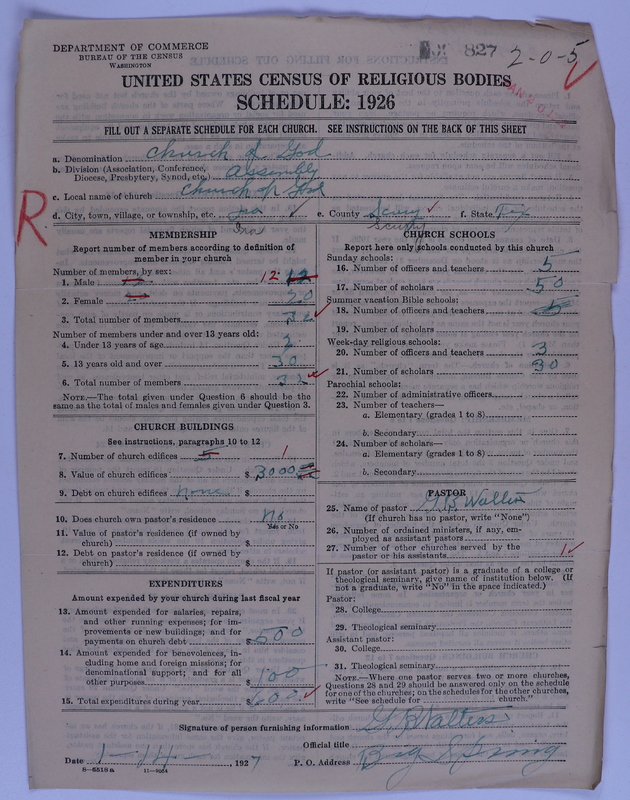 827 2-0-5
DEPARTMENT OF COMMERCE
BUREAU OF THE CENSUS
WASHINGTON
UNITED STATES CENSUS OF RELIGIOUS BODIES
SCHEDULE: 1926
FILL OUT A SEPARATE SCHEDULE FOR EACH CHURCH. SEE INSTRUCTIONS ON THE BACK OF THIS SHEET
a. Denomination Church of God
b. Division (Association, Conference, Diocese, Presbytery, Synod, etc.) Assembly
c. Local name of church Church of God
R
d. City, town, village, or township, etc. Ira e. County Scurry f. State Tex
Ira Scurry
MEMBERSHIP
Report number of members according to definition of
member in your church
Number of members, by sex:
1. Male 12 12
2. Female 20
3. Total number of members 32
Number of members under and over 13 years old:
4. Under 13 years of age 2
5. 13 years old and over 30
6. Total number of members 32
NOTE.—The total given under Question 6 should be
same as the total of males and females given under Question 3.
CHURCH BUILDINGS
See instructions, paragraphs 10 to 12
7. Number of church edifices 5 1
8. Value of church edifices $ 3000
9. Debt on church edifices none $
10. Does church own pastor's residence no
Yes or No
11. Value of pastor's residence (if owned by
church) $
12. Debt on pastor's residence (if owned by
church) $
EXPENDITURES
Amount expended by your church during last fiscal year
13. Amount expended for salaries, repairs,
and other running expenses; for im-
provements or new buildings; and for
payments on church debt $ 500
14. Amount expended for benevolences, in-
cluding home and foreign missions; for
denominational support; and for all
other purposes $ 100
15. Total expenditures during year $ 600
CHURCH SCHOOLS
Report here only schools conducted by this church
Sunday schools:
16. Number of officers and teachers 5
17. Number of scholars 50
Summer vacation Bible schools:
18. Number of officers and teachers 5
19. Number of scholars
Week-day religious schools:
20. Number of officers and teachers 3
21. Number of scholars 30
Parochial schools:
22. Number of administrative officers
23. Number of teachers—
a. Elementary (grades 1 to 8)
b. Secondary
24. Number of scholars—
a. Elementary (grades 1 to 8)
b. Secondary
PASTOR
25. Name of pastor G. B. Walters
(If church has no pastor, write "None")
26. Number of ordained ministers, if any, em-
ployed as assistant pastors
27. Number of other churches served by the
pastor or his assistants 1
If pastor (or assistant pastor) is a graduate of a college or
theological seminary, give name of institution below. (If
not a graduate, write "No" in the space indicated.)
Pastor:
28. College
29. Theological seminary
Assistant pastor:
30. College
31. Theological seminary
NOTE.—Where one pastor serves two or more churches,
Questions 28 and 29 should be answered only on the schedule
for one of the churches; on the schedules for the other churches,
write "See schedule for church."
Signature of person furnishing information G. B. Walters
Official title
Date 1-14-, 1927 P. O. Address Big Spring
8-5518a 11-9664